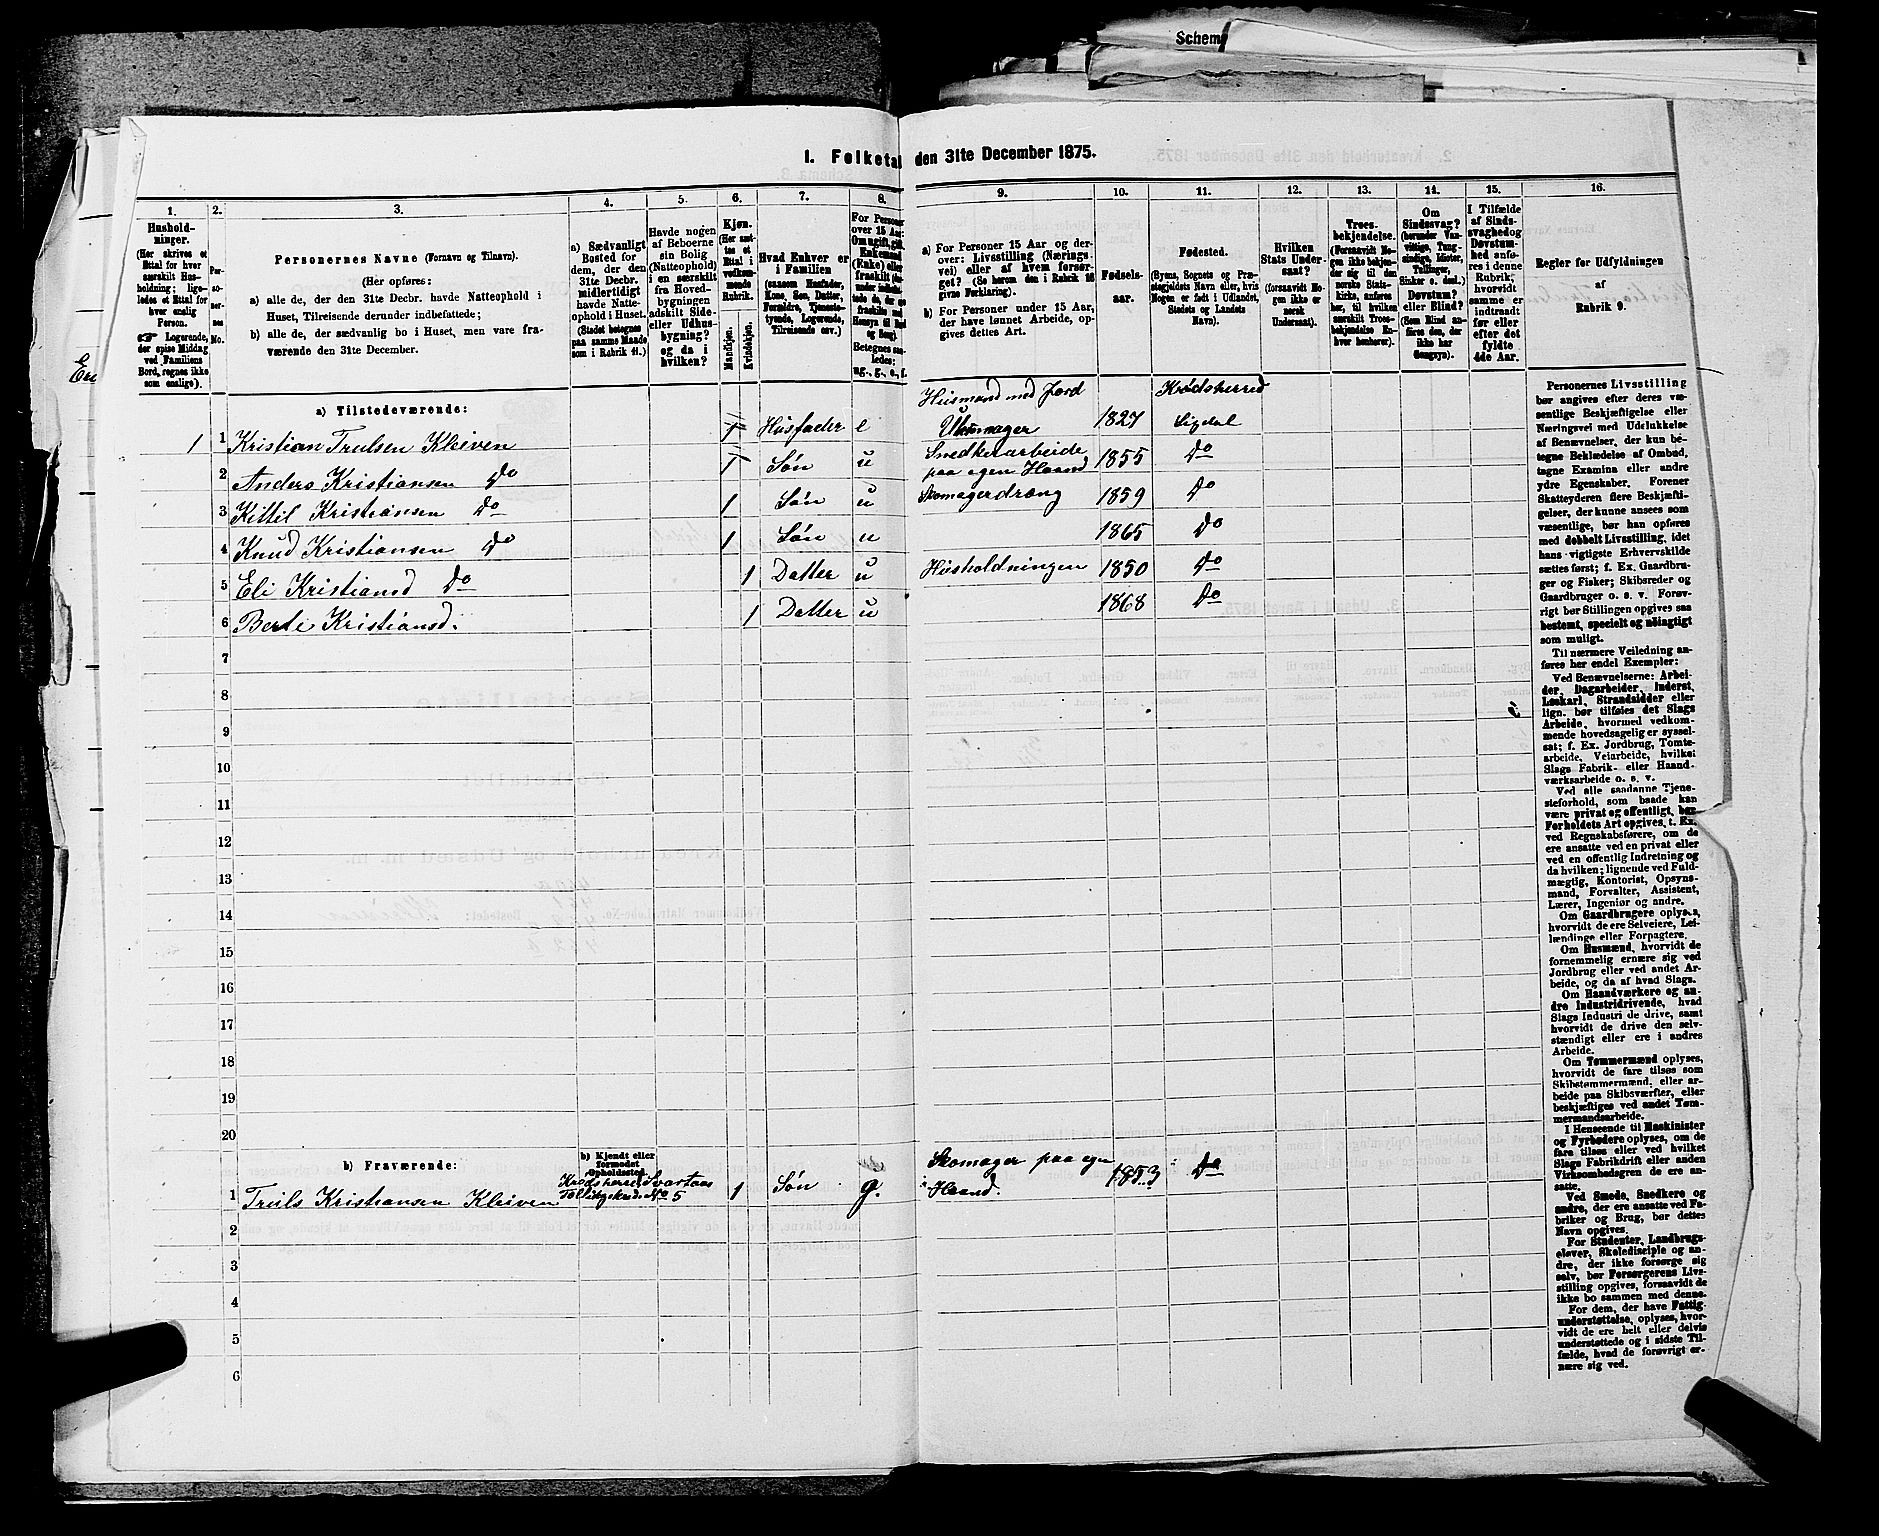 Schem
1. Folketal den 31te December 1875.
1.
Hushold-
ninger.
(Her skrives et
Ettal for hver
særskilt Hus-
holdning; lige-
ledes et Ettal for
hver enslig
Person.
☞ Logerende,
der spise Middag
ved Familiens
Bord, regnes ikke
som enslige).
2.
Per-
so-
ner-
nes
No.
3.
Personernes Navne (Fornavn og Tilnavn).
(Her opføres:
a) alle de, der den 31te Decbr. havde Natteophold i
Huset, Tilreisende derunder indbefattede;
b) alle de, der sædvanlig bo i Huset, men vare fra-
værende den 31te December.
4.
a) Sædvanligt
Bosted for
dem, der den
31te Decbr.
midlertidigt
havde Natte-
ophold i Huset.
(Stedet betegnes
paa samme Maade
som i Rubrik 11.)
5.
Havde nogen
af Beboerne
sin Bolig
(Natteophold)
i en særskilt
fra Hoved-
bygningen
adskilt Side-
eller Udhus-
bygning?
og da i
hvilken?
6.
Kjøn.
(Her sæt-
tes et
Ettal i
vedkom-
mende
Rubrik.
Mandkjøn.
Kvindekjøn.
7.
Hvad Enhver er
i Familien
(saasom Husfader,
Kone, Søn, Datter,
Forældre, Tjeneste-
tyende, Logerende,
Tilreisende osv.)
8.
For Personer
over 15 Aar:
Om ugift, gift,
Enkemand
(Enke) eller
fraskilt
Betegnes saa-
ledes:
ug., g., e., f.
9.
a) For Personer 15 Aar og der-
over: Livsstilling (Nærings-
vei) eller af hvem forsør-
get? (Se herom den i Rubrik 16
givne Forklaring).
b) For Personer under 15 Aar,
der have lønnet Arbeide, op-
gives dettes Art.
10.
Fødsels-
aar.
11.
Fødested.
(Byens, Sognets og Præ-
stegjeldets Navn eller, hvis
Nogen er født i Udlandet,
Stedets og Landets
Navn).
12.
Hvilken
Stats Under-
saat?
(forsaavidt No-
gen ikke er
norsk
Undersaat).
13.
Troes-
bekjendelse.
(Forsaavidt No-
gen ikke bekjen-
der sig til den
norske Stats-
kirke, anføres
her, til hvilken
særskilt Troes-
bekjendelse En-
hver henhører).
14.
Om
Sindssvag?
(herunder Van-
vittige, Tung-
sindige, Idioter,
Tullinger,
Sinker o. desl.)
Døvstum?
eller Blind?
(Som Blind an-
føres den, der
ikke har
Gangsyn).
15.
I Tilfælde
af Sinds-
svaghed og
Døvstum-
hed anfø-
res i denne
Rubrik,
hvorvidt
samme er
indtraadt
før eller
efter det
fyldte
4de Aar.
16.
Regler for Udfyldningen
af
Rubrik 9.
a) Tilstedeværende:
1 1 Kristian Trulsen Kleiven 1 Husfader e Husmand med Jord Uhrmager 1827 Krødsherred Sigdal
2 Anders Kristiansen Do 1 Søn u Snedkerarbeide paa egen Haand 1855 Do
3 Kittil Kristiansen Do 1 Søn u Skomagerdræng 1859 Do
4 Knud Kristiansen Do 1 Søn u 1865 Do
5 Eli Kristiansd Do 1 Datter u Husholdningen 1850 Do
6 Berte Kristiansd. 1 Datter u 1868 Do
7
8
9
10
11
12
13
14
15
16
17
18
19
20
b) Fraværende:
b) Kjendt eller
formodet
Opholdssted.
1 Truls Kristiansen Kleiven Krødsherred Svartaas No 5 1 Søn g. Skomager paa egen Haand. 1853 Do
2
3
4
5
6
Personernes Livsstilling
bør angives efter deres væ-
sentlige Beskjæftigelse eller
Næringsvei med Udelukkelse
af Benævnelser, der kun be-
tegne Beklædelse af Ombud,
tagne Examina eller andre
ydre Egenskaber. Forener
Skatteyderen flere Beskjæfti-
gelser, der kunne ansees som
væsentlige, bør han opføres
med dobbelt Livsstilling, idet
hans vigtigste Erhvervskilde
sættes først; f. Ex. Gaardbru-
ger og Fisker; Skibsreder og
Gaardbruger o. s. v. Forøv-
rigt bør Stillingen opgives saa
bestemt, specielt og nøiagtigt
som muligt.
Til nærmere Veiledning an-
føres her endel Exempler:
Ved Benævnelserne: Arbei-
der, Dagarbeider, Inderst,
Løskarl, Strandsidder eller
lign. bør tilføies det Slags
Arbeide, hvormed vedkom-
mende hovedsagelig er syssel-
sat; f. Ex. Jordbrug, Tomte-
arbeide, Veiarbeide, hvilket
Slags Fabrik- eller Haand-
værksarbeide o. s. v.
Ved alle saadanne Tjene-
steforhold, som baade kan
være privat og offentligt, bør
Forholdets Art opgives, t. Ex.
ved Regnskabsførere, om de
ere ansatte ved en privat eller
ved en offentlig Indretning og
da hvilken; lignende ved Fuld-
mægtig, Kontorist, Opsyns-
mand, Forvalter, Assistent,
Lærer, Ingeniør og andre.
Om Gaardbrugere oplyses,
hvorvidt de ere Selveiere, Lei-
lændinge eller Forpagtere.
Om Husmænd, hvorvidt de
fornemmelig ernære sig ved
Jordbrug eller ved andet Ar-
beide, og da af hvad Slags.
Om Haandværkere og an-
dre Industridrivende, hvad
Slags Industri de drive, samt
hvorvidt de drive den selv-
stændigt eller ere i andres
Arbeide.
Om Tømmermænd oplyses,
hvorvidt de fare tilsøs som
Skibstømmermænd, eller ar-
beide paa Skibsværfter, eller
beskjæftiges ved andet Tøm-
mermandsarbeide.
I Henseende til Maskinister
og Fyrbødere oplyses, om de
fare tilsøs eller ved hvilket
Slags Fabrikdrift eller anden
Virksomhedsgren de ere an-
satte.
Ved Smede, Snedkere og
andre, der ere ansatte ved Fa-
briker og Brug, bør dettes
Navn opgives.
For Studenter, Landbrugs-
elever, Skoledisciple og an-
dre, der ikke forsørge sig
selv, bør Forsørgerens Livs-
stilling opgives, forsaavidt de
ikke bo sammen med denne.
For dem, der have Fattig-
understøttelse, oplyses, hvor-
vidt de ere helt eller delvis
understøttede og i sidste Til-
fælde, hvad de forøvrigt er-
nære sig ved.